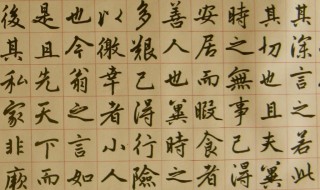 其深言之若此
其切也且夫冀
時之無事己得
安居而暇食者
善人也冀時之
多艱己得行險
以徼幸者小人
也今翁之言如
是且先天下而
後其私家非厥